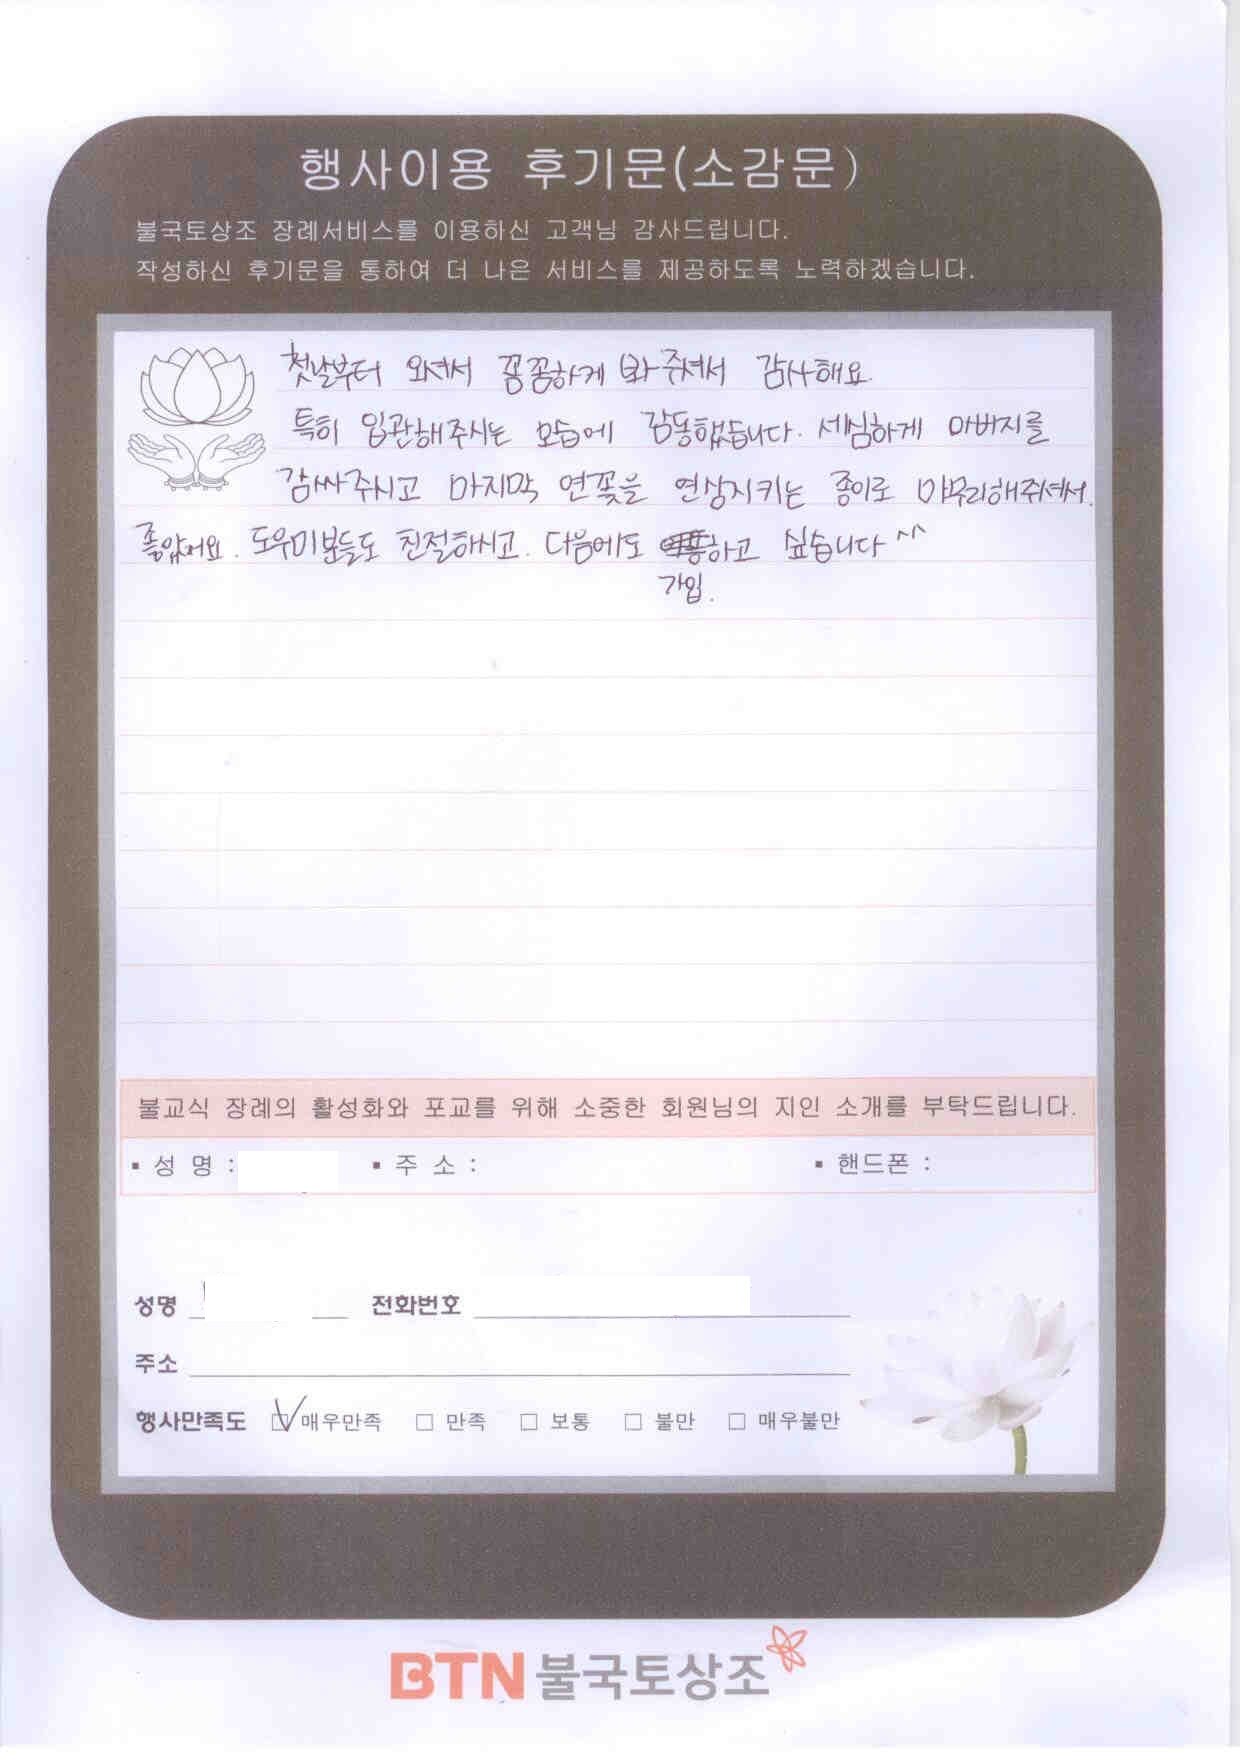 행사이용 후기문(소감문)
불국토상조 장례서비스를 이용하신 고객님 감사드립니다.
작성하신 후기문을 통하여 더 나은 서비스를 제공하도록 노력하겠습니다.
첫날부터 오셔서 꼼꼼하게 봐 주셔서 감사해요.
특히 입관해주시는 모습에 감동했습니다. 세심하게 아버지를
감싸주시고 마지막 연꽃을 연상시키는 종이로 마무리해주셔서.
좋았어요. 도우미분들도 친절하시고. 다음에도 하고 싶습니다 ^^
가입.
불교식 장례의 활성화와 포교를 위해 소중한 회원님의 지인 소개를 부탁드립니다.
▪ 성 명 : ▪ 주 소 : ▪ 핸드폰 :
성명 전화번호
주소
행사만족도 ☑ 매우만족 □ 만족 □ 보통 □ 불만 □ 매우불만
BTN 불국토상조